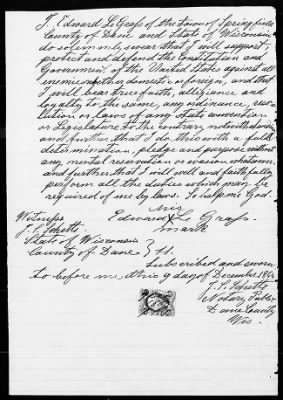 I, Edward L Grafs of the town of Springfield
County of Dane and State of Wisconsin
do solemnly swear that I will support,
protect and defend the Constitution and
Government of the United States against all
enemies whether domestic or foreign, and that
I will bear true faith, allegiance and
loyalty to the same, any ordinance, reso-
lution or laws of any State convention
or Legislature to the contrary notwithstanding
and further that I do this with a full
determination, pledge and purpose without
any mental reservation or evasion whatsoever,
and further that I will well and faithfully
perform all the duties which may be
required of me by laws. So help me God.
his
Witness Edward X L Grafs
mark
State of Wisconsin
County of Dane
Subscribed and sworn
to before me, this 9 day of December
Notary Public
Dane County
Wis